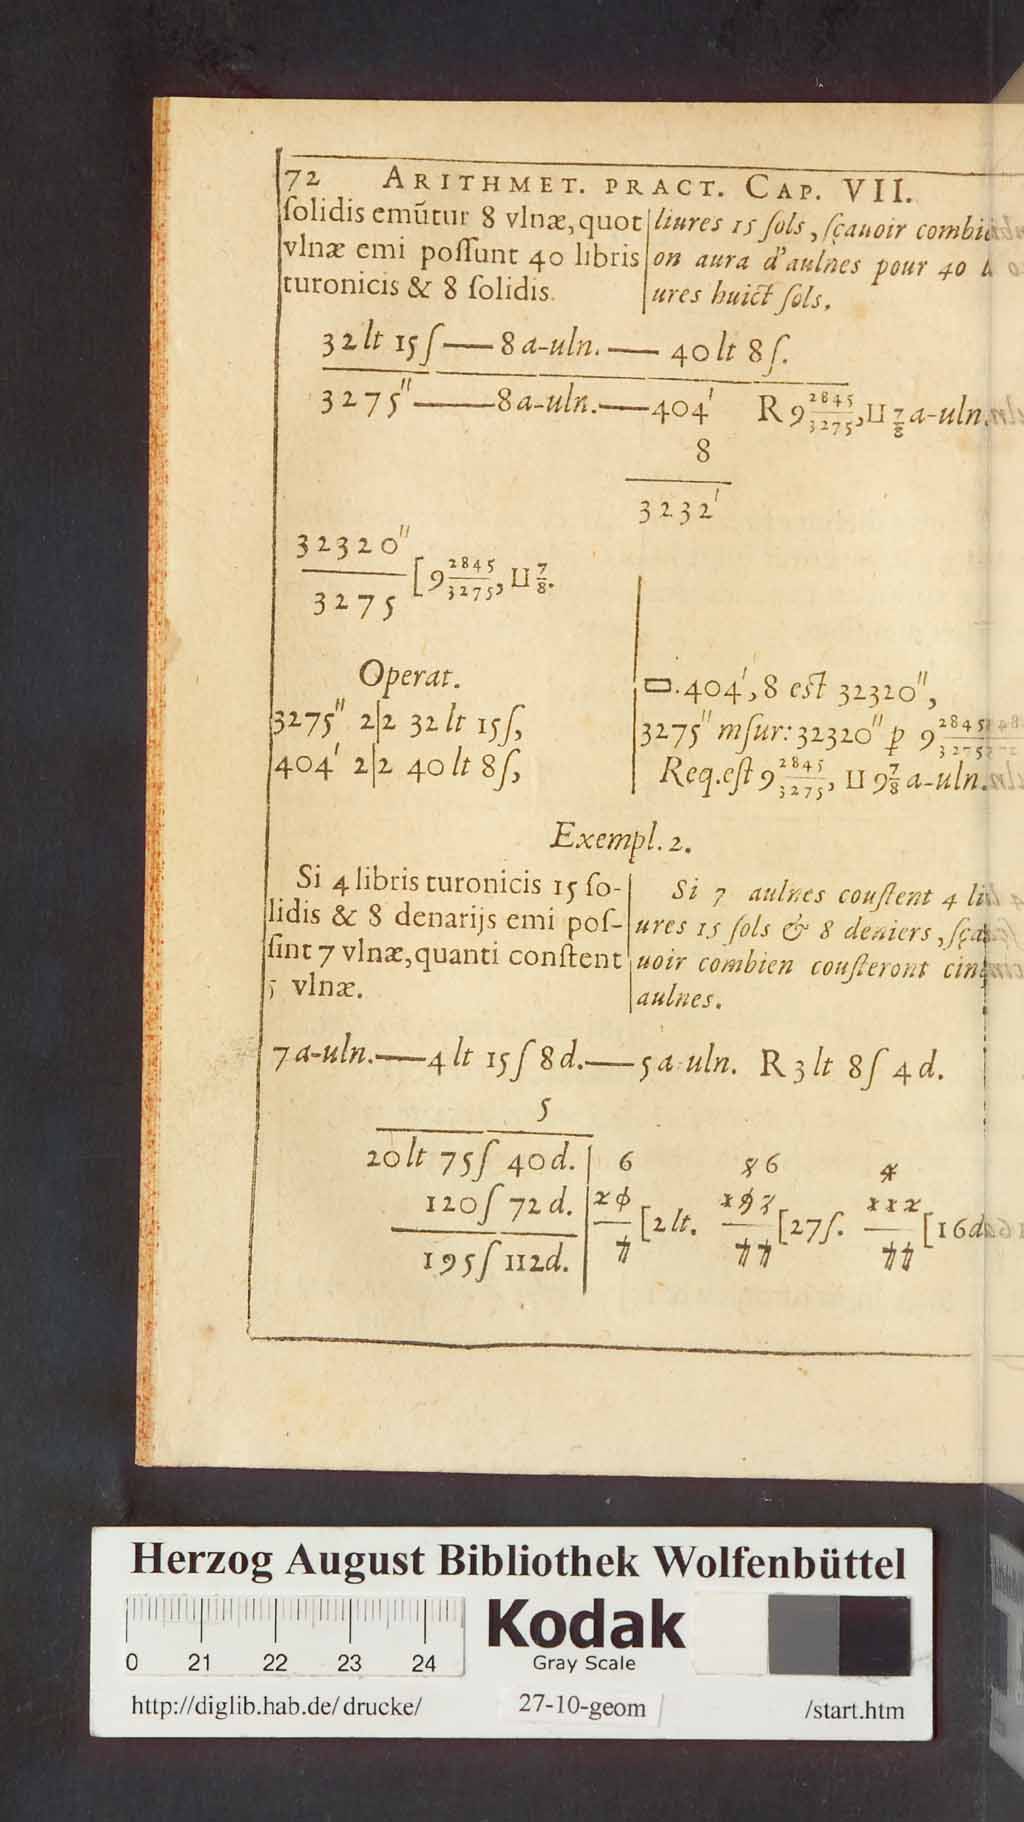 72 ARITHMET. PRACT. CAP. VII.
ſolidis emũtur 8 vlnæ, quot
vlnæ emi poſſunt 40 libris
turonicis & 8 ſolidis.
liures 15 ſols, ſçauoir combiē
on aura d'aulnes pour 40 li
ures huict ſols.
32 lt 15 ſ — 8 a-uln. — 40 lt 8 ſ.
3275'' — 8 a-uln. — 404' R 9 2845/3275, ⨆ 7/8 a-uln.
8
3232'
32320''
3275 [9 2845/3275, ⨆ 7/8.
Operat.
3275'' 2|2 32 lt 15 ſ,
404' 2|2 40 lt 8 ſ,
▭. 404', 8 eſt 32320'',
3275'' mſur: 32320'' ꝑ 9 2845/3275
Req. eſt 9 2845/3275, ⨆ 9 7/8 a-uln.
Exempl. 2.
Si 4 libris turonicis 15 ſo-
lidis & 8 denarijs emi poſ-
ſint 7 vlnæ, quanti conſtent
5 vlnæ.
Si 7 aulnes couſtent 4 li
ures 15 ſols & 8 deniers, ſça
uoir combien couſteront cinq
aulnes.
7 a-uln. — 4 lt 15 ſ 8 d. — 5 a-uln. R 3 lt 8 ſ 4 d.
5
20 lt 75 ſ 40 d. | 6 8̸6 4̸
120 ſ 72 d. | 2̸0̸ [2 lt. 1̸9̸5̸ [27 ſ. 1̸1̸2̸ [16 d.
195 ſ 112 d. | 7̸ 7̸7̸ 7̸7̸
Herzog August Bibliothek Wolfenbüttel
0 21 22 23 24
Kodak
Gray Scale
http://diglib.hab.de/drucke/ 27-10-geom /start.htm